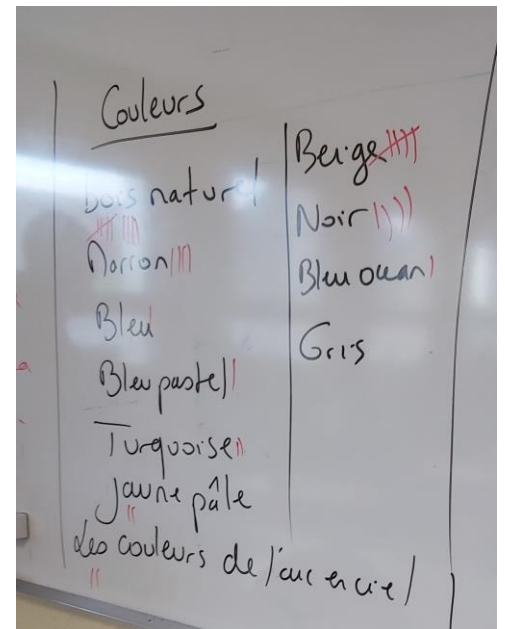 Couleurs
bois naturel
Marron
Bleu
Bleu pastel
Turquoise
jaune pâle
Les couleurs de l'arc en ciel
Beige
Noir
Bleu ocean
Gris